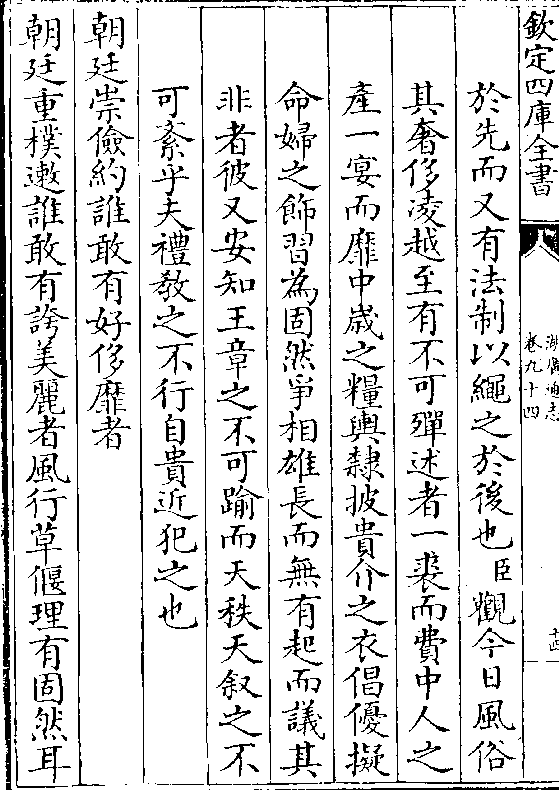 欽定四庫全書
湖廣通志
卷九十四
十四
於先而又有法制以繩之於後也臣觀今日風俗
其奢侈凌越至有不可殫述者一裘而費中人之
產一宴而靡中歲之糧輿隸披貴介之衣倡優擬
命婦之飾習為固然爭相雄長而無有起而議其
非者彼又安知王章之不可踰而天秩天叙之不
可紊乎夫禮教之不行自貴近犯之也
朝廷崇儉約誰敢有好侈靡者
朝廷重樸遬誰敢有誇美麗者風行草偃理有固然耳